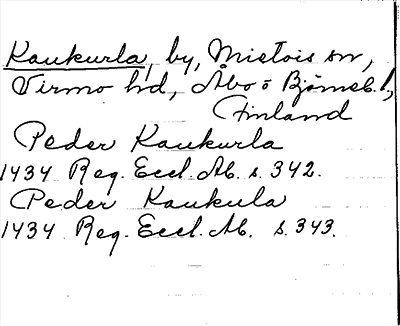 Kaukurla, by, Mietois sn,
Virmo hd, Åbo o Björneb. l,
Finland
Peder Kaukurla
1434 Reg. Eccl. Ab. s. 342.
Peder Kaukula
1434 Reg. Eccl. Ab. s. 343.